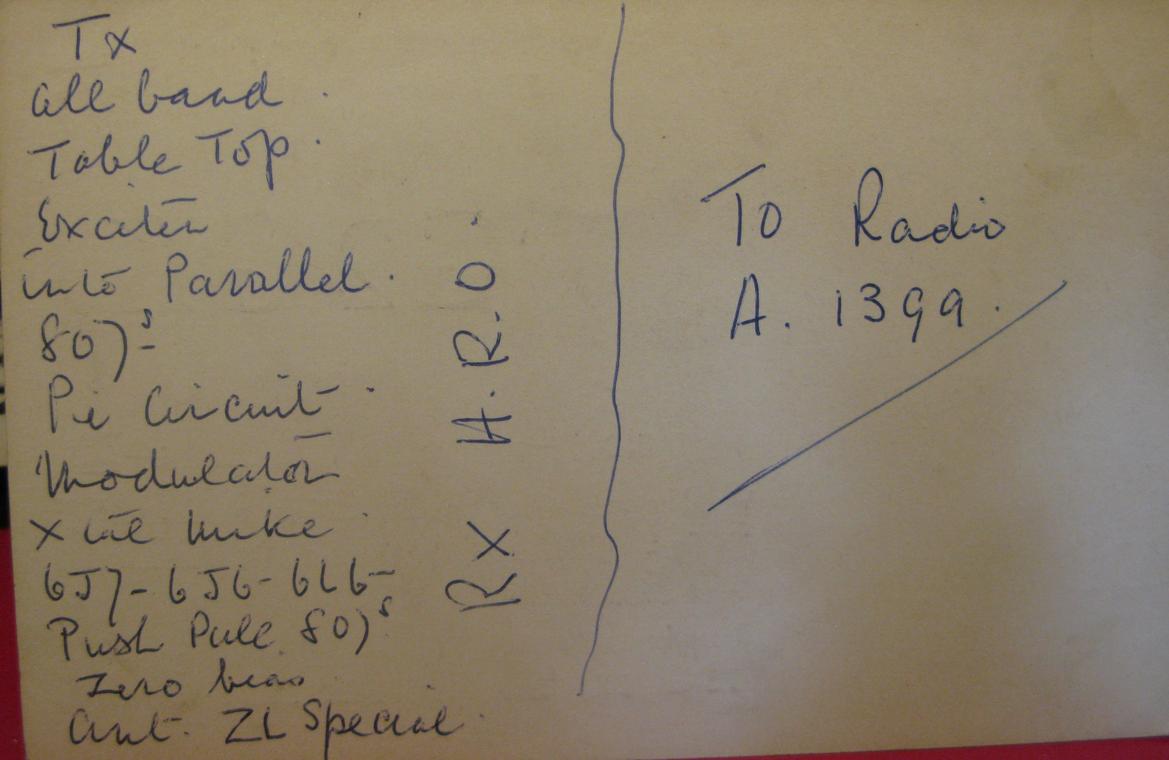 Tx
all band.
Table Top.
Exciter
into Parallel.
807s
Pi Circuit.
Modulator
xtal mike.
6J7-6J6-6L6-
Push Pull 807s
Zero bias
Ant. ZL Special.
Rx H.R.O.
To Radio
A. 1399.